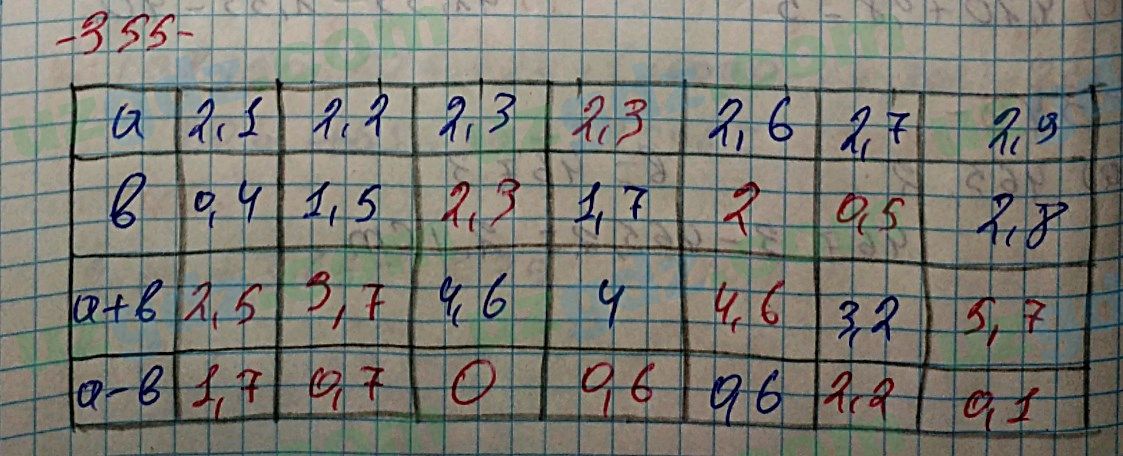 -355-
a 2,1 2,2 2,3 2,3 2,6 2,7 2,9
в 0,4 1,5 2,3 1,7 2 0,5 2,8
a+в 2,5 3,7 4,6 4 4,6 3,2 5,7
a-в 1,7 0,7 0 0,6 0,6 2,2 0,1